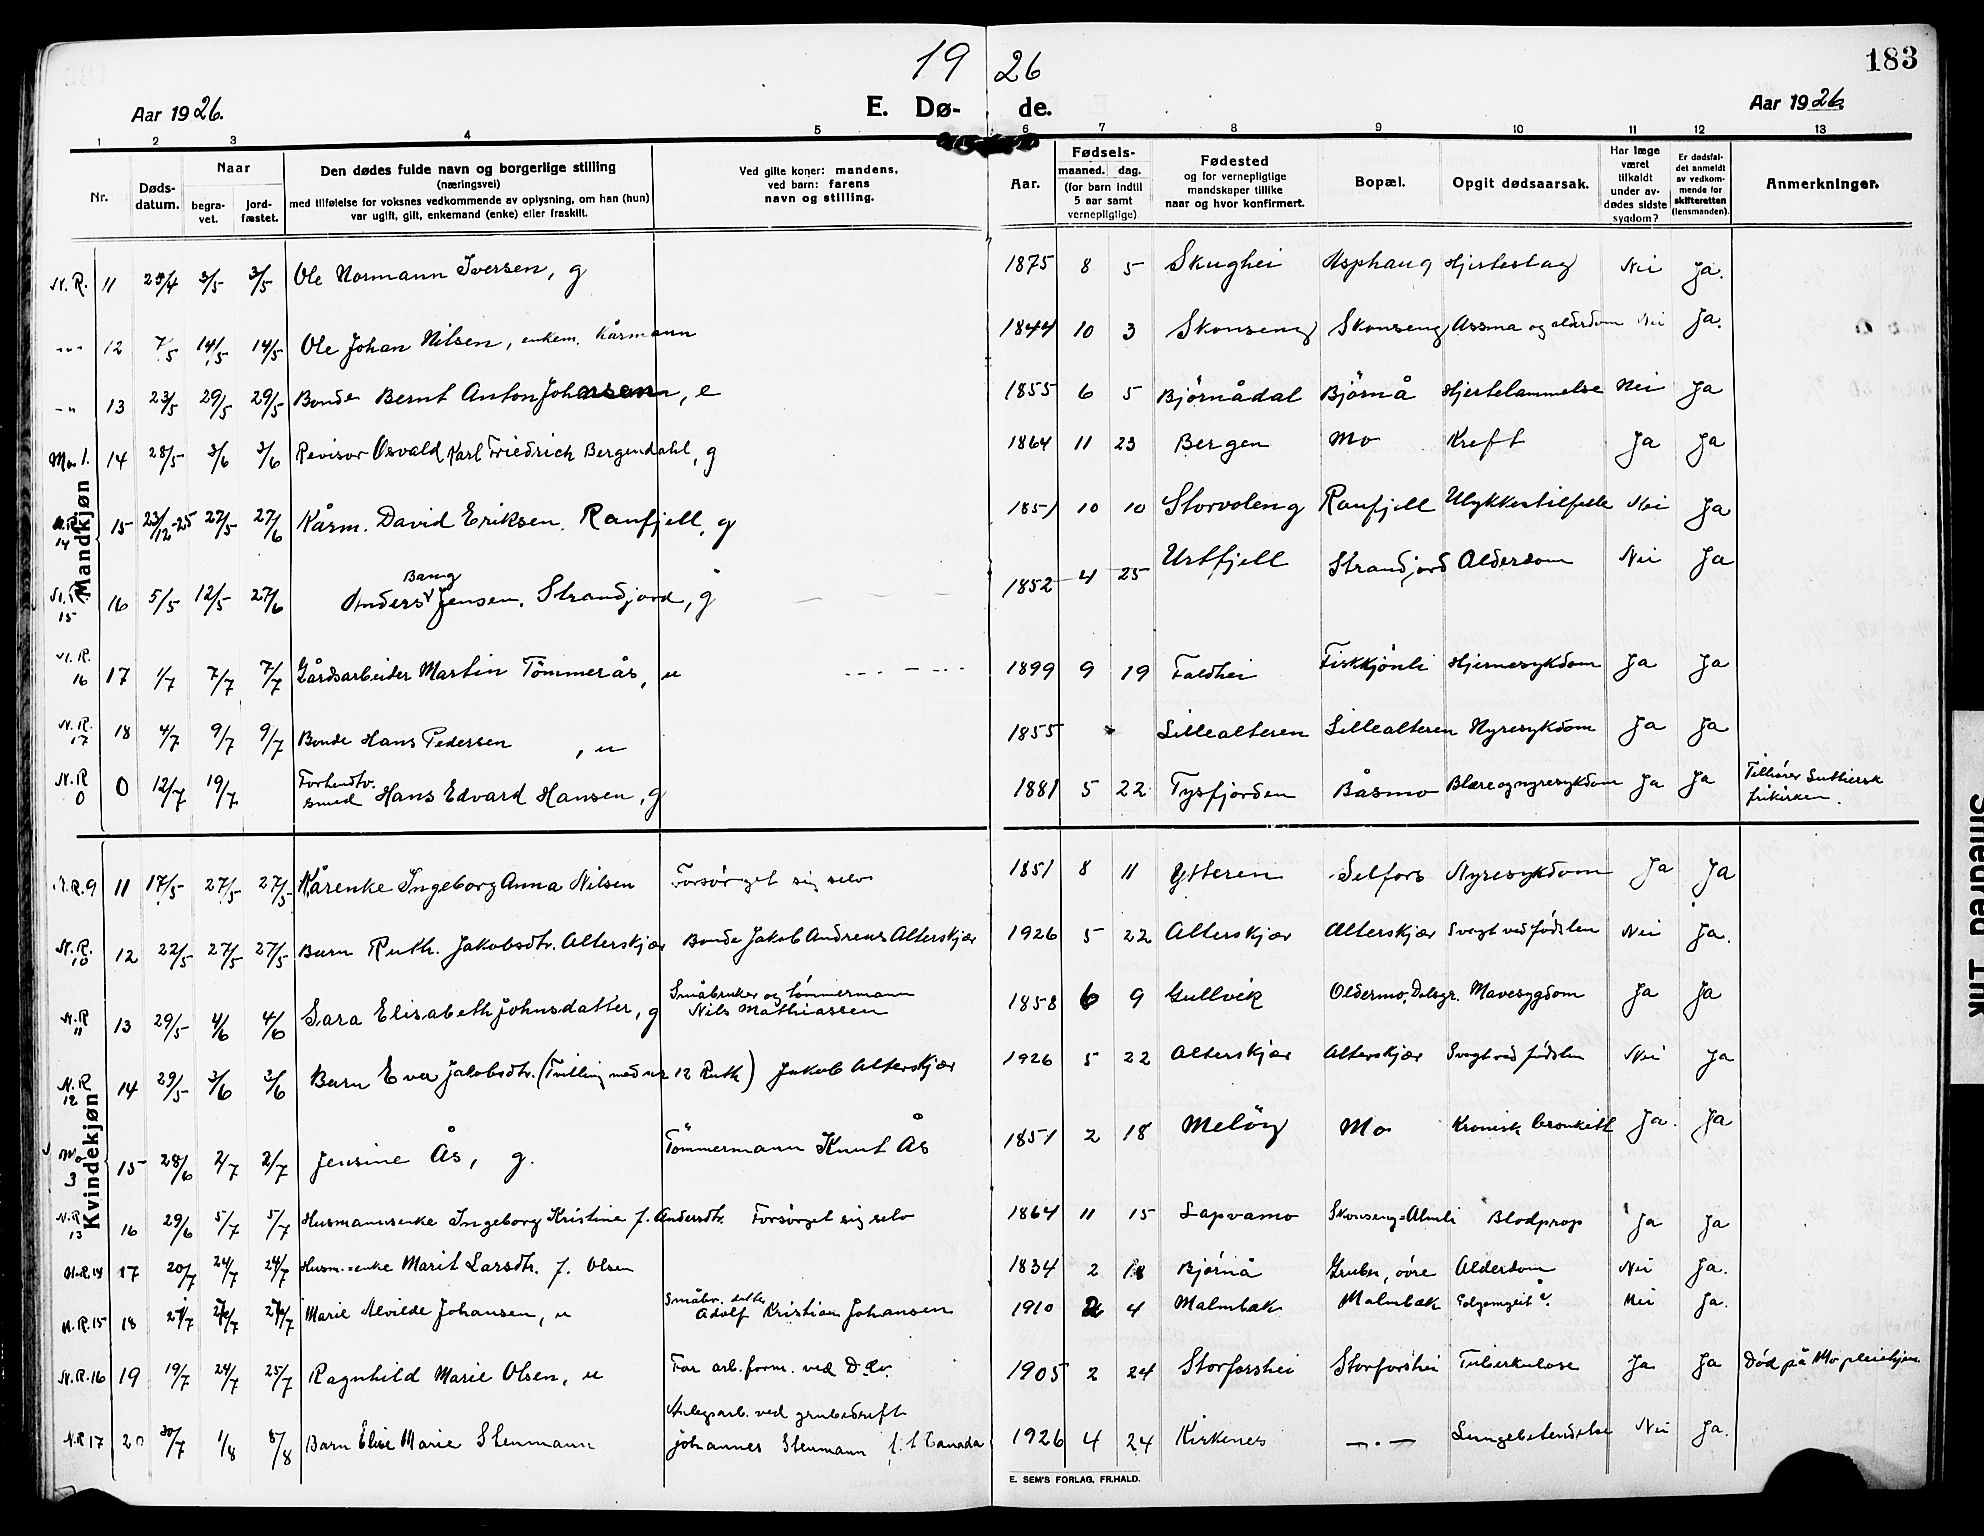 19 26
183
Aar 1926.
E. Dø- de.
Aar 1926.
1 2 3 4 5 6 7 8 9 10 11 12 13
Nr.
Døds-
datum.
Naar
begra-
vet.
jord-
fæstet.
Den dødes fulde navn og borgerlige stilling
(næringsvei)
med tilføielse for voksnes vedkommende av oplysning, om han (hun)
var ugift, gift, enkemand (enke) eller fraskilt.
Ved gifte koner: mandens,
ved barn: farens
navn og stilling.
Aar.
Fødsels-
maaned. dag.
(for barn indtil
5 aar samt
vernepligtige)
Fødested
og for vernepligtige
mandskaper tillike
naar og hvor konfirmert.
Bopæl.
Opgit dødsaarsak.
Har læge
været
tilkaldt
under av-
dødes sidste
sygdom?
Er dødsfal-
det anmeldt
av vedkom-
mende for
skifteretten
(lensmanden).
Anmerkninger.
Mandkjøn
N.R. 11 29/4 3/5 3/5 Ole Normann Iversen, g 1875 8 5 Skughei Asphaug Hjerteslag Nei Ja.
-"- 12 7/5 14/5 14/5 Ole Johan Nilsen, enkem. Kårmann 1844 10 3 Skonseng Skonseng Assma og alderdom Nei Ja.
-"- 13 23/5 29/5 29/5 Bonde Bernt Anton Johansen, e 1855 6 5 Bjørnådal Bjørnå Hjertelammelse Nei Ja
Mo 1. 14 28/5 3/6 3/6 Revisor Osvald Karl Friedrich Bergendahl, g 1864 11 23 Bergen Mo Kreft Ja Ja
N.R. 14 15 23/12-25 27/5 27/6 Kårm. David Eriksen. Ranfjell, g 1851 10 10 Storvoleng Ranfjell Ulykkestilfelle Nei Ja
N.R. 15 16 5/5 12/5 27/6 Anders Bang Jensen. Strandjord, g 1852 4 25 Urtfjell Strandjord Alderdom Nei Ja
N.R. 16 17 1/7 7/7 7/7 Gårdsarbeider Martin Tömmerås, u 1899 9 19 Faldhei Fiskkjönli Hjernesykdom Ja Ja
N.R. 17 18 4/7 9/7 9/7 Bonde Hans Pedersen, u 1855 Lillealteren Lillealteren Nyresykdom Ja Ja
N.R 0 0 12/7 19/7 Forhenstv. smed Hans Edvard Hansen, g 1881 5 22 Tysfjorden Båsmo Blære og nyresykdom Ja Ja Tilhører Luthersk frikirken.
Kvindekjøn
N.R. 9 11 17/5 27/5 27/5 Kårenke Ingeborg Anna Nilsen Forsörget sig selv 1851 8 11 Ytteren Selfors Nyresykdom Ja Ja
N.R. 10 12 22/5 27/5 27/5 Barn Ruth. Jakobsdtr. Alterskjær Bonde Jakob Andreas Alterskjær 1926 5 22 Alterskjær Alterskjær Svagt ved födslen Nei Ja.
N.R 11 13 29/5 4/6 4/6 Sara Elisabeth Johnsdatter, g Småbruker og tömmermann Nils Mathiassen 1858 6 9 Gullvik Oldermo, Dalsgr. Mavesygdom Ja Ja
N.R 12 14 29/5 3/6 3/6 Barn Eva Jakobsdtr. (Tvilling med nr 12 Ruth) Jakob Alterskjær 1926 5 22 Alterskjær Alterskjær Svagt ved födslen Nei Ja
Mo 3 15 28/6 2/7 2/7 Jensine Ås, g. Tömmermann Knut Ås 1851 2 18 Melöy Mo Kronisk bronkitt Ja. Ja
N.R 13 16 29/6 5/7 5/7 Husmannsenke Ingeborg Kristine f. Andersdtr. Forsörget sig selv 1864 11 15 Lapvamo Skonseng-Almli Blodprop Ja Ja
N.R.14 17 20/7 24/7 24/7 Husm.-enke Marit Larsdtr. f. Olsen 1834 2 18 Bjørnå Gruben, övre Alderdom Nei Ja.
N.R.15 18 Marie Alvilde Johansen, u Småbr. datter Adolf Kristian Johansen 1910 2 4 Malmbæk Malmbæk Nei Ja.
N.R.16 19 19/7 24/7 25/7 Ragnhild Marie Olsen, u Far arb.form. ved D. 1905 2 24 Storforshei Storforshei Tuberkulose Ja Ja Död på Mo pleiehjem
N.R 17 20 30/7 1/8 8/8 Barn Elise Marie Stenmann Anlegsarb. ved grubedrift Johannes Stenmann f. t Canada 1926 4 24 Kirkenes -.- Lungebetendelse Nei Ja.
E. SEM'S FORLAG, FR.HALD.